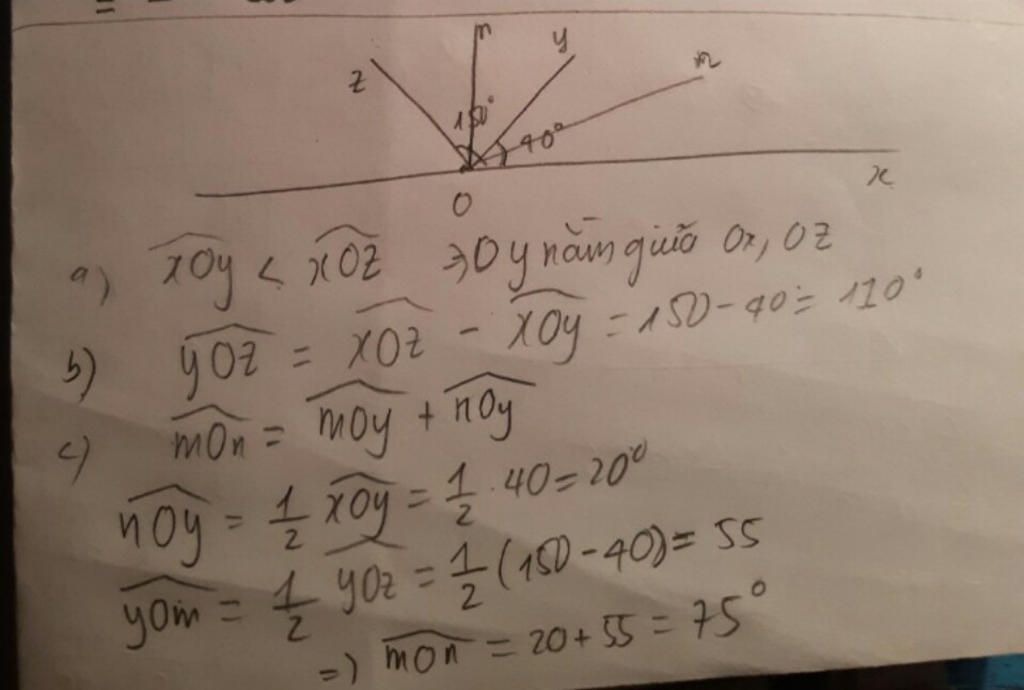 z n y m
150° 40°
O x
a) xOy < xOz => Oy nằm giữa Ox, Oz
b) yOz = xOz - xOy = 150 - 40 = 110°
c) mOn = mOy + nOy
nOy = 1/2 xOy = 1/2 . 40 = 20°
yOm = 1/2 yOz = 1/2 (150 - 40) = 55
=) mOn = 20 + 55 = 75°